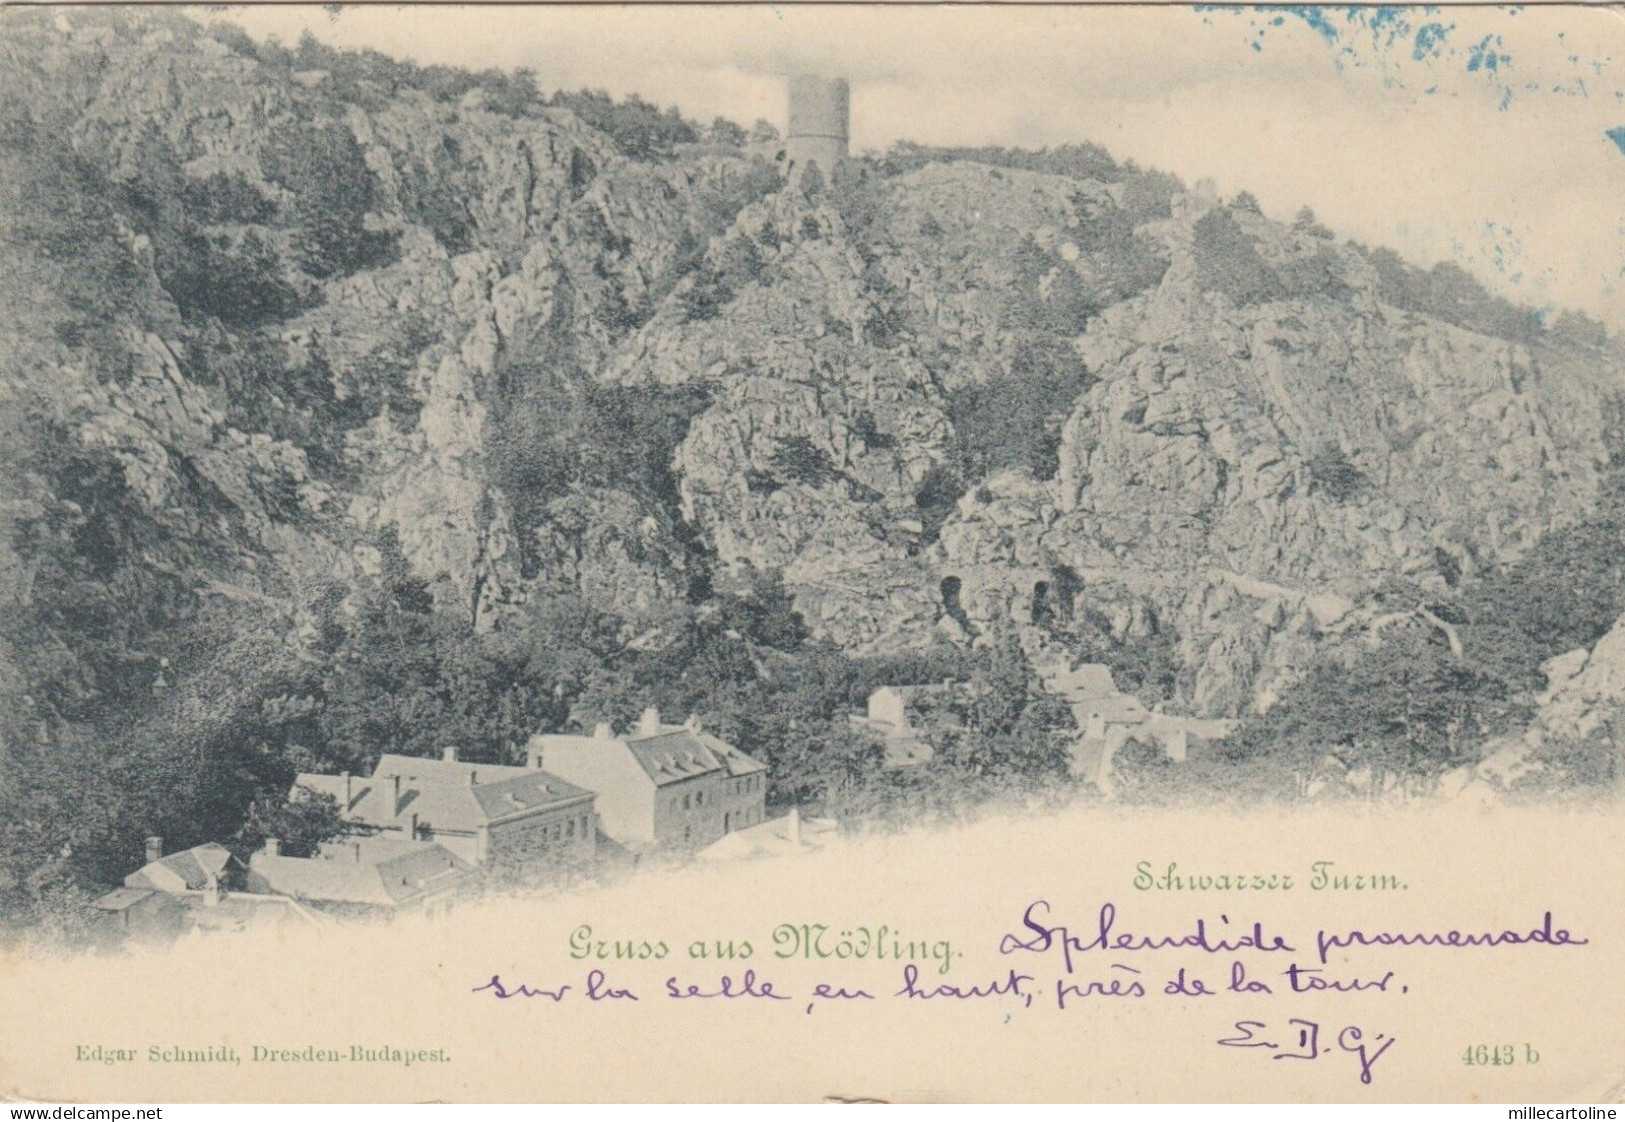 Schwarzer Turm.
Gruss aus Mödling.
Splendide promenade
sur la selle, en haut, près de la tour.
E. D. G.
Edgar Schmidt, Dresden-Budapest.
4643 b
www.delcampe.net
millecartoline